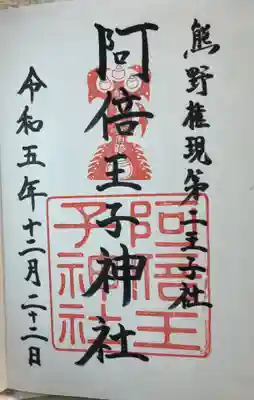 熊野権現第二王子社
阿倍王子神社
令和五年十二月二十二日
阿倍王
子神社